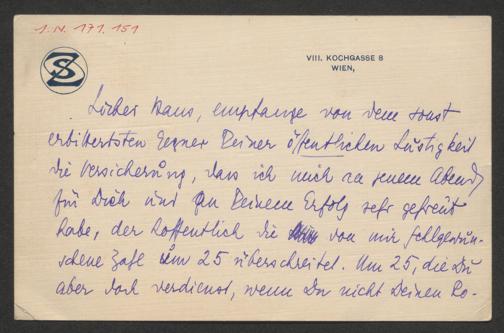 I.N. 171.151
SZ
VIII. KOCHGASSE 8
WIEN,
Lieber Hans, empfange von dem sonst
erbittertsten Gegner Deiner öffentlichen Lustigkeit
die Versicherung, dass ich mich an jenem Abend
für Dich und an Deinem Erfolg sehr gefreut
habe, der hoffentlich die von mir fehlgewun-
schene Zahl um 25 überschreitet. Um 25, die Du
aber doch verdienst, wenn Du nicht Deinen Ro-